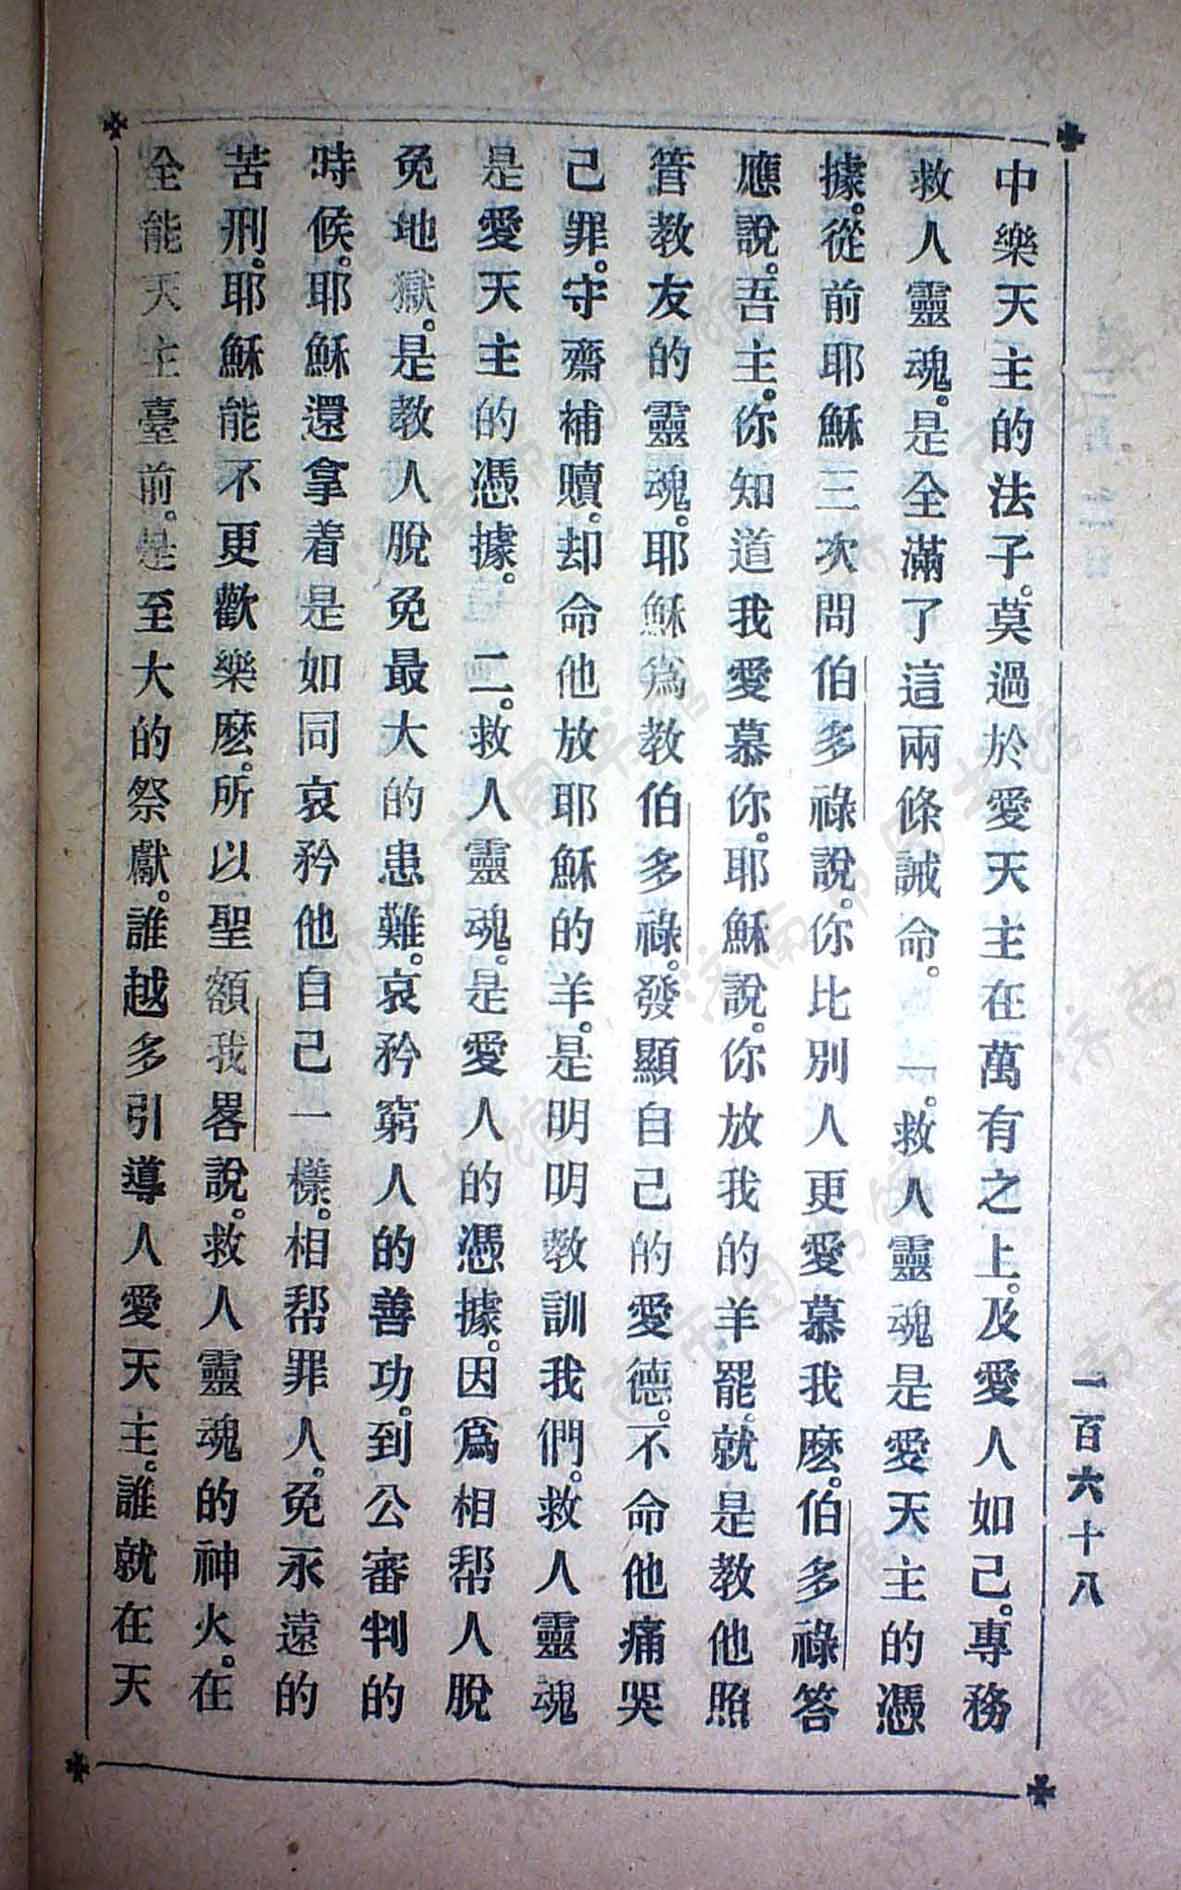 中樂天主的法子。莫過於愛天主在萬有之上。及愛人如己。專務
救人靈魂。是全滿了這兩條誡命。一。救人靈魂是愛天主的憑
據。從前耶穌三次問伯多祿說。你比別人更愛慕我麽。伯多祿答
應說。吾主。你知道我愛慕你。耶穌說。你放我的羊罷。就是教他照
管教友的靈魂。耶穌爲教伯多祿。發顯自己的愛德。不命他痛哭
己罪。守齋補贖。却命他放耶穌的羊。是明明教訓我們。救人靈魂
是愛天主的憑據。二。救人靈魂。是愛人的憑據。因爲相帮人脫
免地獄。是教人脫免最大的患難。哀矜窮人的善功。到公審判的
時候。耶穌還拿着是如同哀矜他自己一樣。相帮罪人。免永遠的
苦刑。耶穌能不更歡樂麽。所以聖額我畧說。救人靈魂的神火。在
全能天主臺前。是至大的祭獻。誰越多引導人愛天主。誰就在天
一百六十八